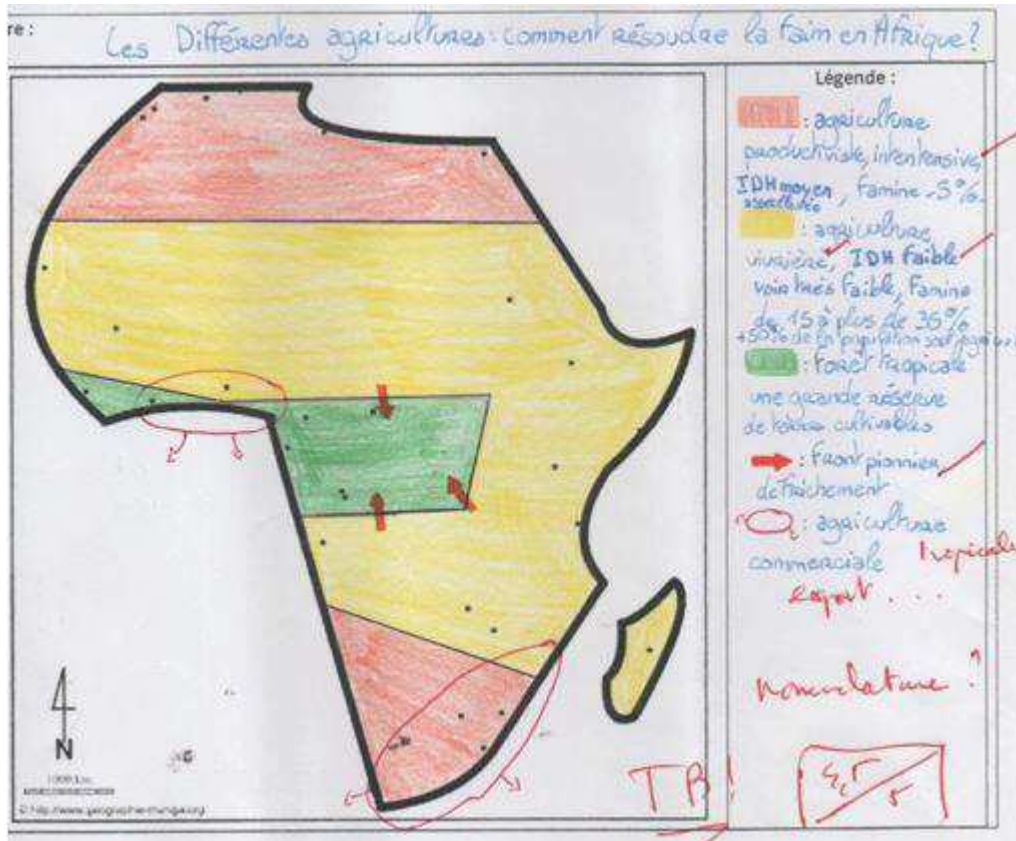 re :
Les Différentes agricultures : comment résoudre la faim en Afrique ?
Légende :
: agriculture
productiviste, intentensive,
IDH moyen, Famine -5%.
: agriculture
vivrière, IDH faible
voir très faible, Famine
de 15 à plus de 35%
+50% de la population sont
: Forêt tropicale
une grande réserve
de terres cultivables
: Front pionnier
défrichement
: agriculture
commerciale
tropicale
export . . .
nomenclature ?
TB !
N
1000 km
© http://www.geographie-muniga.org